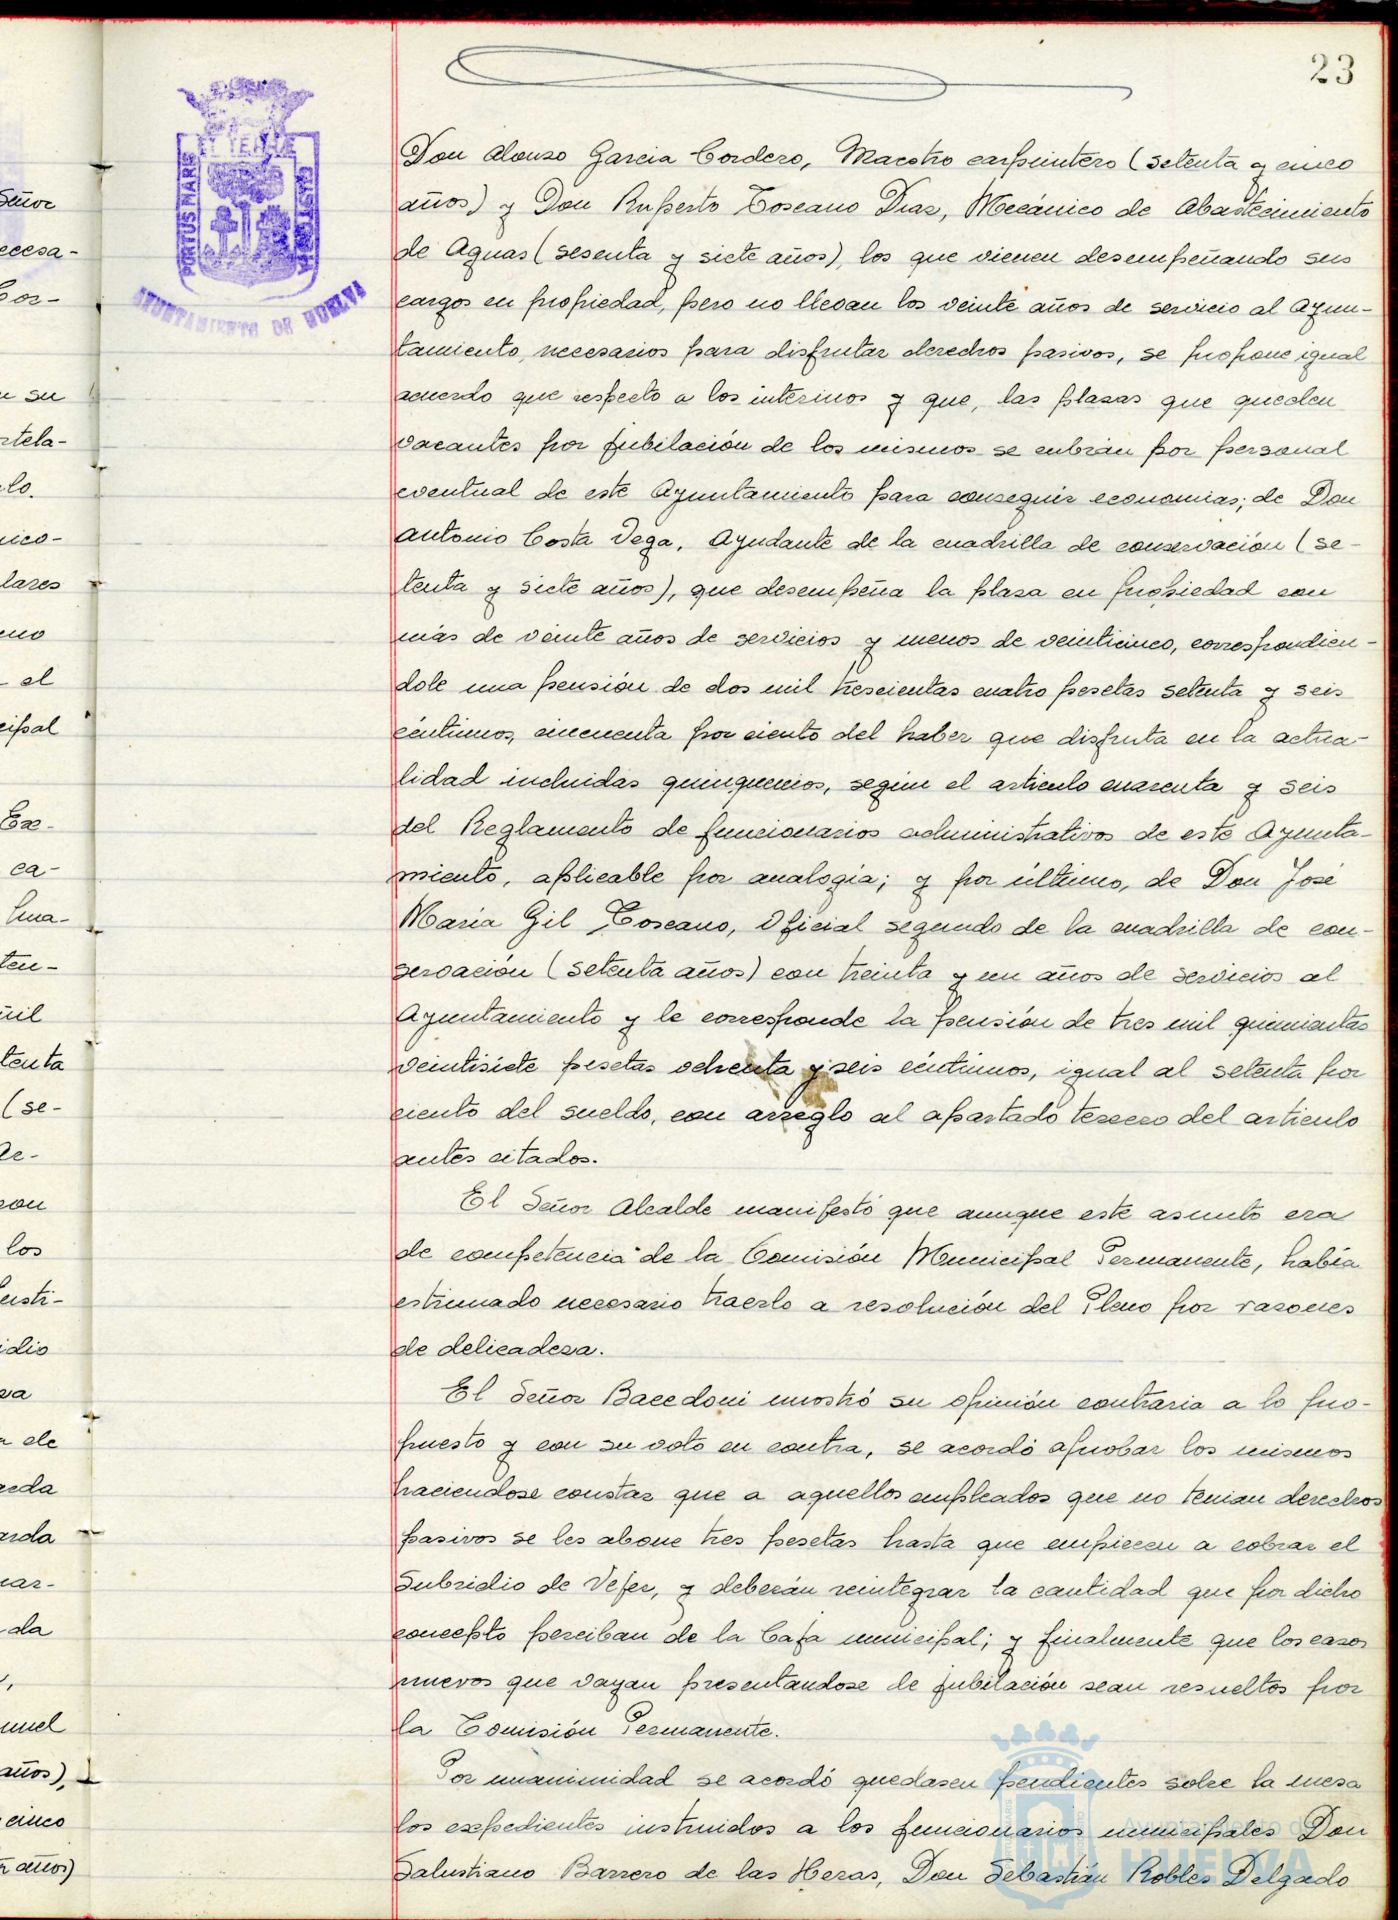 23
ET TERRAE
PORTUS MARIS
CUSTODIA
AYUNTAMIENTO DE HUELVA
Don Alonso Garcia Cordero, Maestro carpintero (setenta y cinco
años) y Don Ruperto Toscano Diaz, Mecánico de Abastecimiento
de Aguas (sesenta y siete años), los que vienen desempeñando sus
cargos en propiedad, pero no llevan los veinte años de servicio al Ayun-
tamiento necesarios para disfrutar derechos pasivos, se propone igual
acuerdo que respecto a los interinos y que, las plazas que queden
vacantes por jubilación de los mismos se cubrán por personal
eventual de este Ayuntamiento para conseguir economias; de Don
Antonio Costa Vega, Ayudante de la cuadrilla de conservación (se-
tenta y siete años), que desempeña la plaza en propiedad con
más de veinte años de servicios y menos de veinticinco, correspondien-
dole una pensión de dos mil trescientas cuatro pesetas setenta y seis
céntimos, cincuenta por ciento del haber que disfruta en la actua-
lidad incluidas quinquenios, según el articulo cuarenta y seis
del Reglamento de funcionarios administrativos de este Ayunta-
miento, aplicable por analogía; y por último, de Don José
María Gil Toscano, Oficial segundo de la cuadrilla de con-
servación (setenta años) con treinta y un años de servicios al
Ayuntamiento y le corresponde la pensión de tres mil quinientas
veintisiete pesetas ochenta y seis céntimos, igual al setenta por
ciento del sueldo, con arreglo al apartado tercero del articulo
antes citados.
El Señor Alcalde manifestó que aunque este asunto era
de competencia de la Comisión Municipal Permanente, había
estimado necesario traerlo a resolución del Pleno por razones
de delicadeza.
El Señor Bacedoni mostró su opinión contraria a lo pro-
puesto y con su voto en contra, se acordó aprobar los mismos
haciendose constar que a aquellos empleados que no tenian derechos
pasivos se les abone tres pesetas hasta que empiecen a cobrar el
Subsidio de Vejez, y deberán reintegrar la cantidad que por dicho
concepto perciban de la Caja municipal; y finalmente que los casos
nuevos que vayan presentandose de jubilación sean resueltos por
la Comisión Permanente.
Por unanimidad se acordó quedasen pendientes sobre la mesa
los expedientes instruidos a los funcionarios municipales Don
Salustiano Barrero de las Heras, Don Sebastián Robles Delgado
Ayuntamiento de
HUELVA